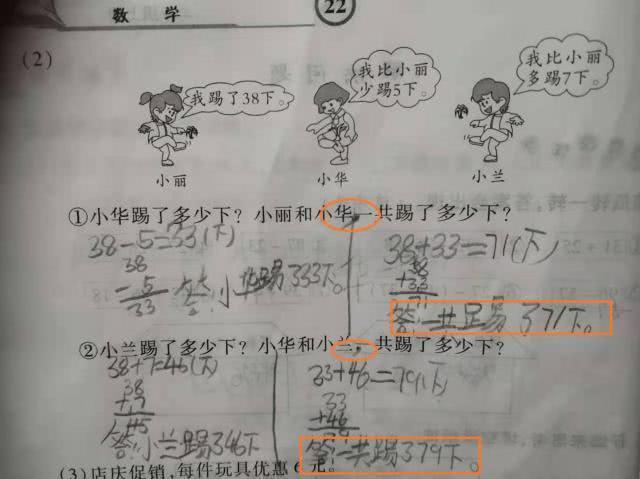 数 学
22
(2)
我踢了38下。
我比小丽
少踢5下。
我比小丽
多踢7下。
小丽 小华 小兰
①小华踢了多少下？小丽和小华一共踢了多少下？
38-5=33(下) 38+33=71(下)
38
-5
33
答:小华踢了33下。
38
+33
71
答:一共足易了71下。
②小兰踢了多少下？小华和小兰一共踢了多少下？
38+7=46(下) 33+46=79(下)
38
+7
45
答:小兰踢了46下
33
+46
答:一共踢了79下。
(3)店庆促销,每件玩具优惠6元。